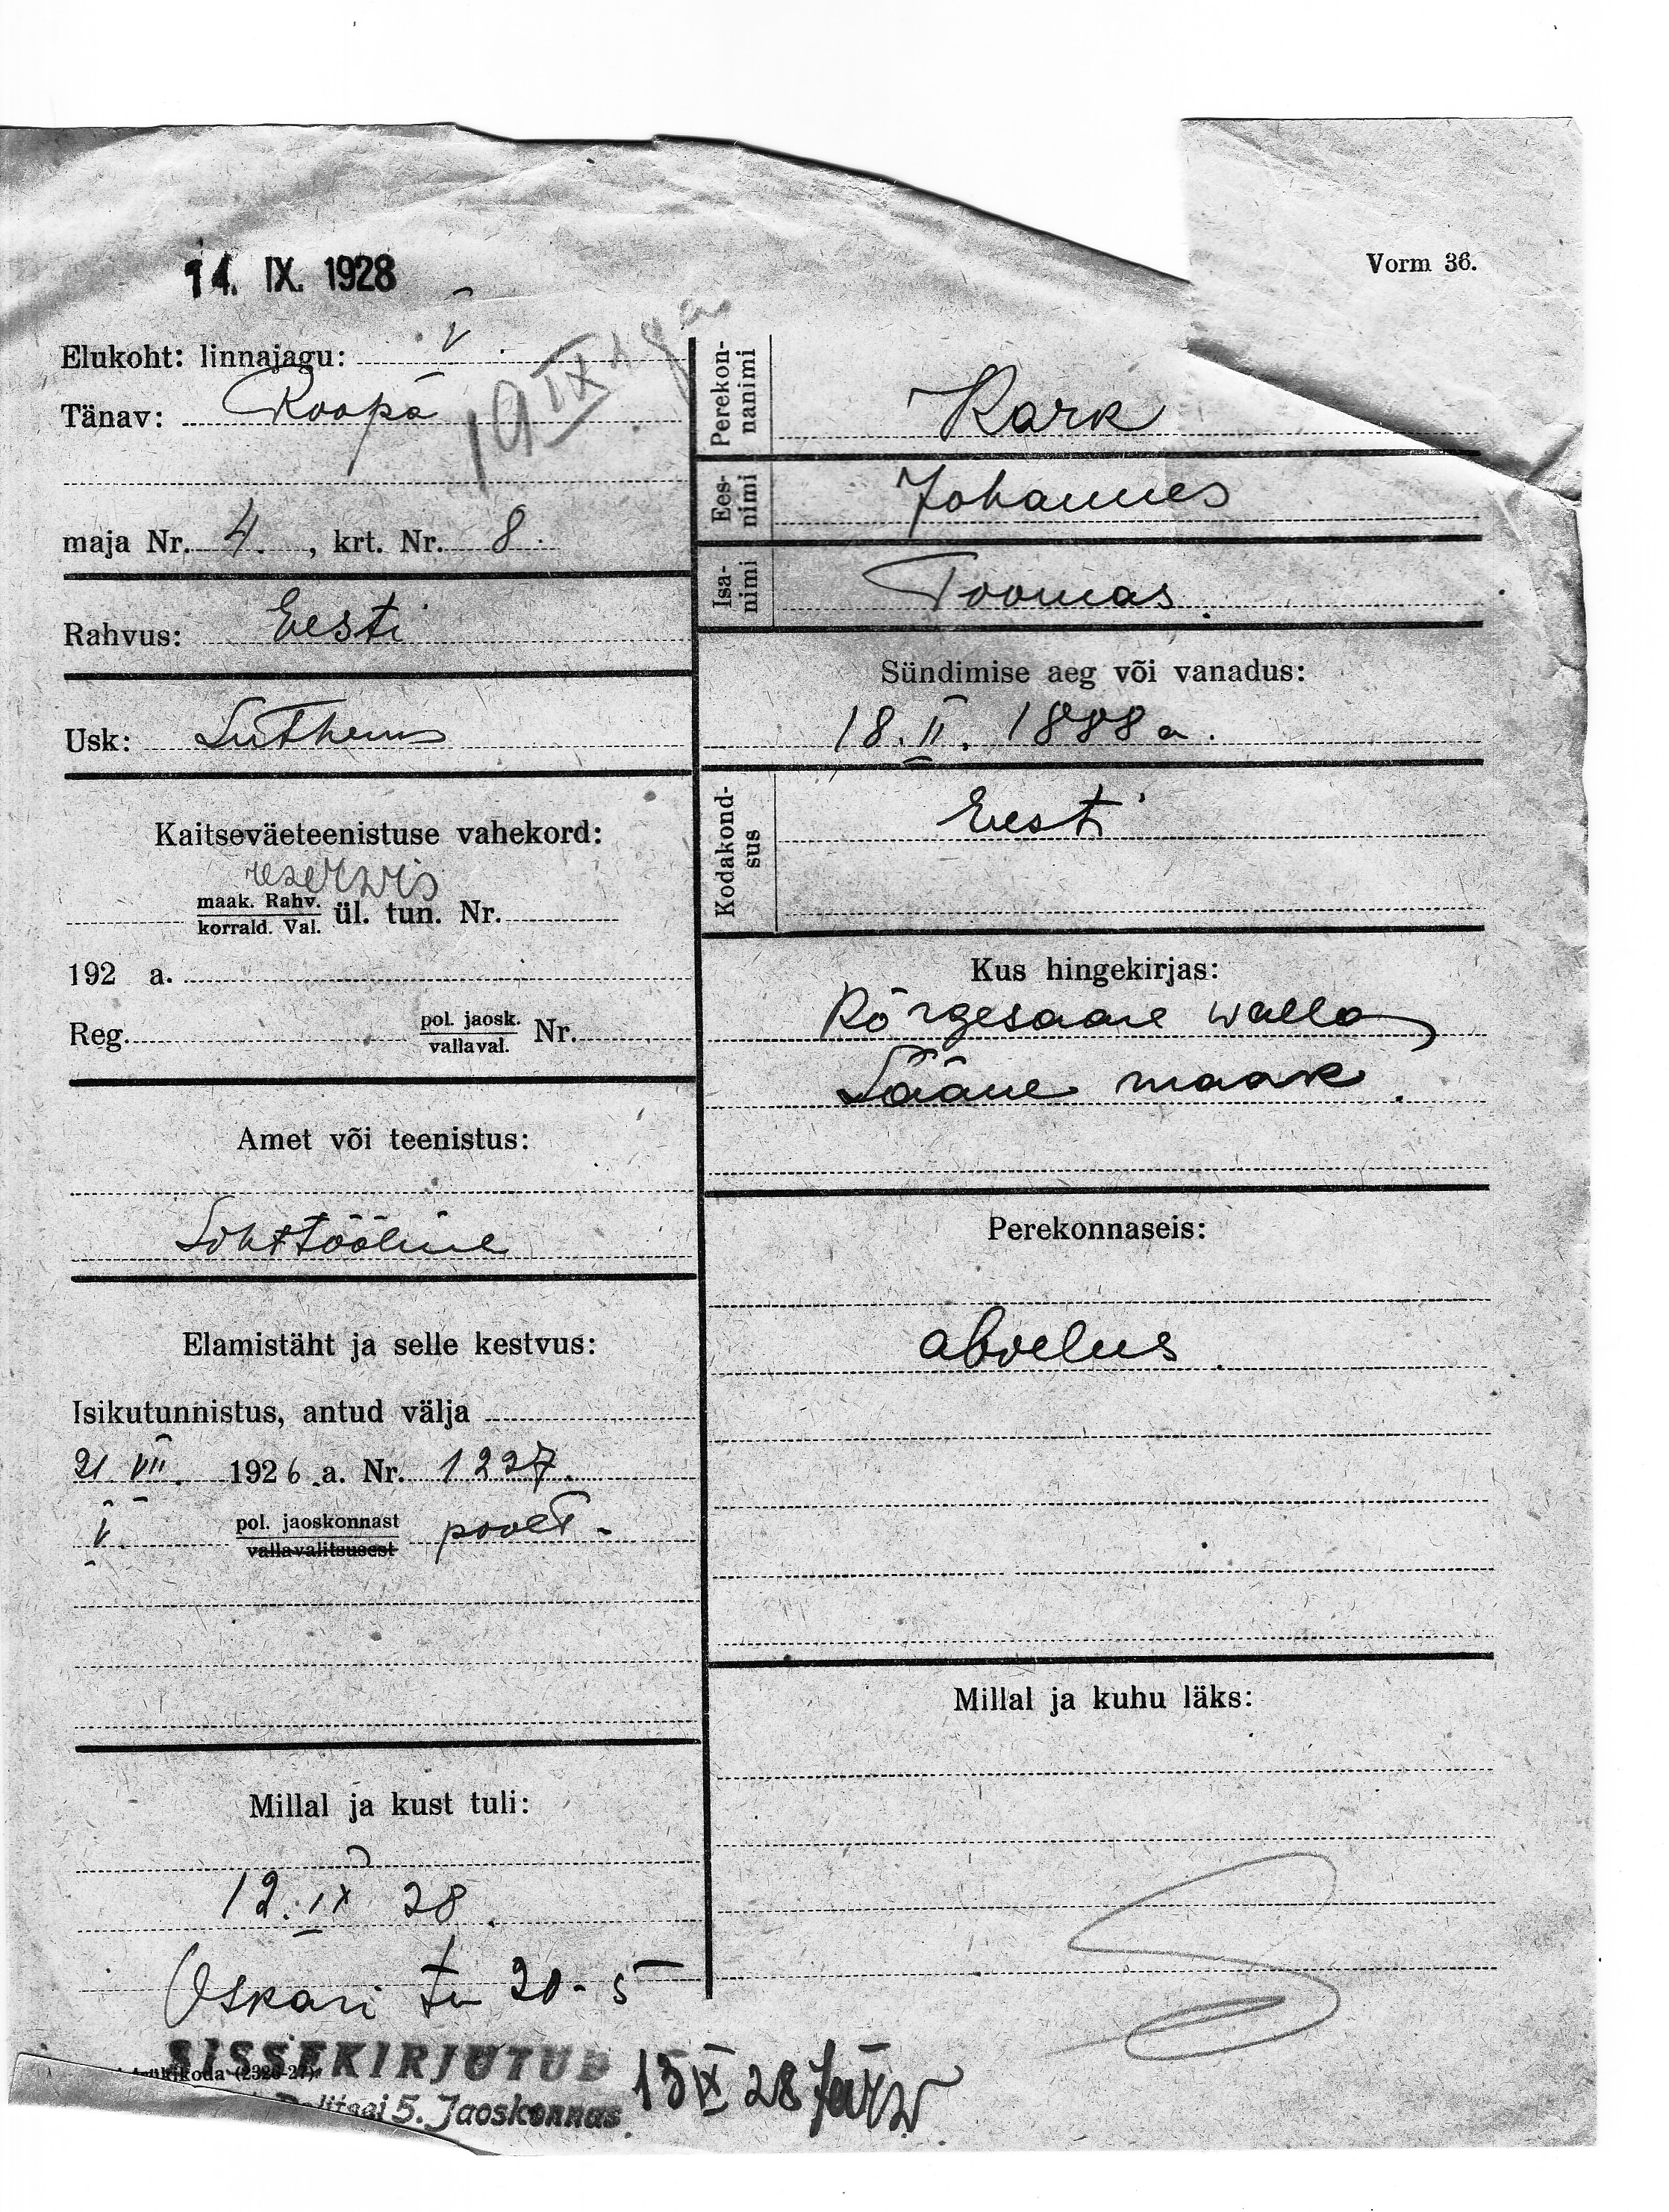 14. IX. 1928
Vorm 36.
Elukoht: linnajagu: V
Tänav: Koopa
19 IX
maja Nr. 4. , krt. Nr. 8.
Rahvus: Eesti
Usk: Lutherus
Kaitseväeteenistuse vahekord:
reserwis
maak. Rahv.
korrald. Val. ül. tun. Nr.
192 a.
Reg. pol. jaosk.
vallaval. Nr.
Amet või teenistus:
Lihttööline
Elamistäht ja selle kestvus:
Isikutunnistus, antud välja
21 VII. 1926 a. Nr. 1227.
V. pol. jaoskonnast poolt.
vallavalitsusest
Millal ja kust tuli:
12. IX 28.
Oskari tn 20-5
Perekon-
nanimi
Kark
Ees-
nimi
Johannes
Isa-
nimi
Toomas.
Sündimise aeg või vanadus:
18. II. 1888 a.
Kodakond-
sus
Eesti
Kus hingekirjas:
Kõrgesaare walla
Lääne maak.
Perekonnaseis:
abielus.
Millal ja kuhu läks:
SISSEKIRJUTUD
trükikoda (2326-27)
Politsei 5. Jaoskonnas
15 IX 28